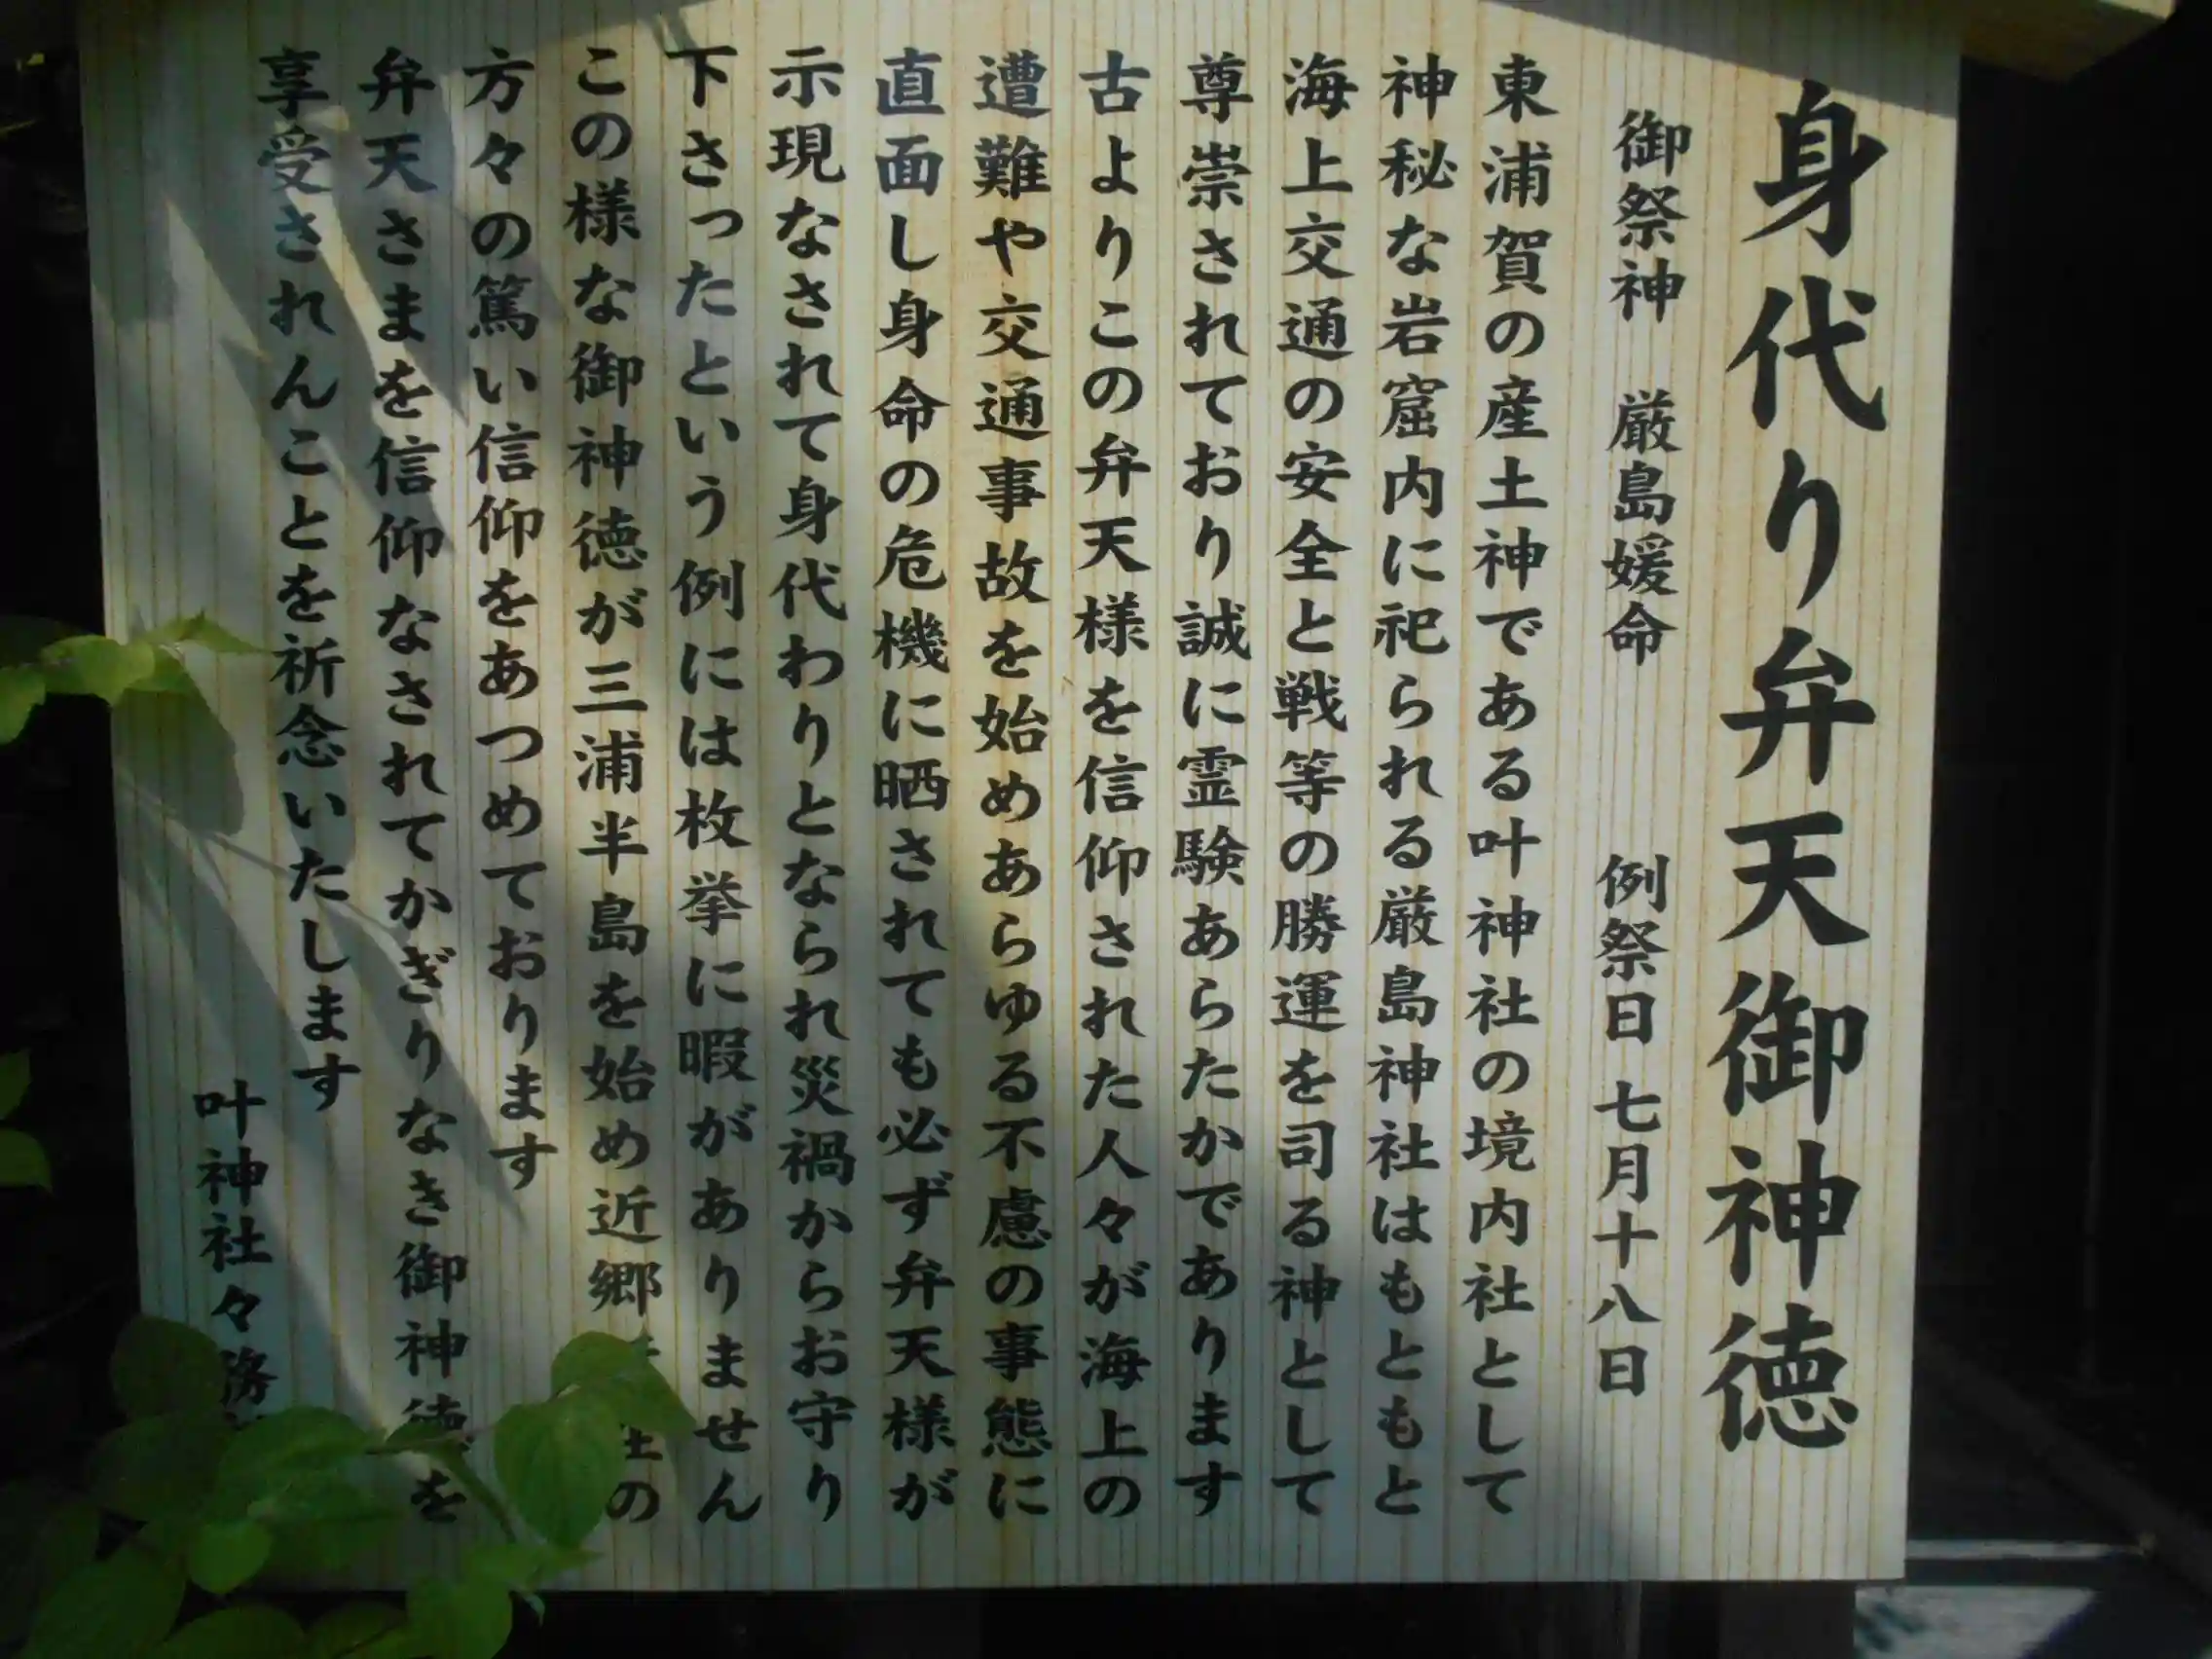 身代り弁天御神徳
御祭神　厳島媛命　例祭日 七月十八日
東浦賀の産土神である叶神社の境内社として
神秘な岩窟内に祀られる厳島神社はもともと
海上交通の安全と戦等の勝運を司る神として
尊崇されており誠に霊験あらたかであります
古よりこの弁天様を信仰された人々が海上の
遭難や交通事故を始めあらゆる不慮の事態に
直面し身命の危機に晒されても必ず弁天様が
示現なされて身代わりとなられ災禍からお守り
下さったという例には枚挙に暇がありません
この様な御神徳が三浦半島を始め近郷 の
方々の篤い信仰をあつめております
弁天さまを信仰なされてかぎりなき御神徳を
享受されんことを祈念いたします
叶神社々務